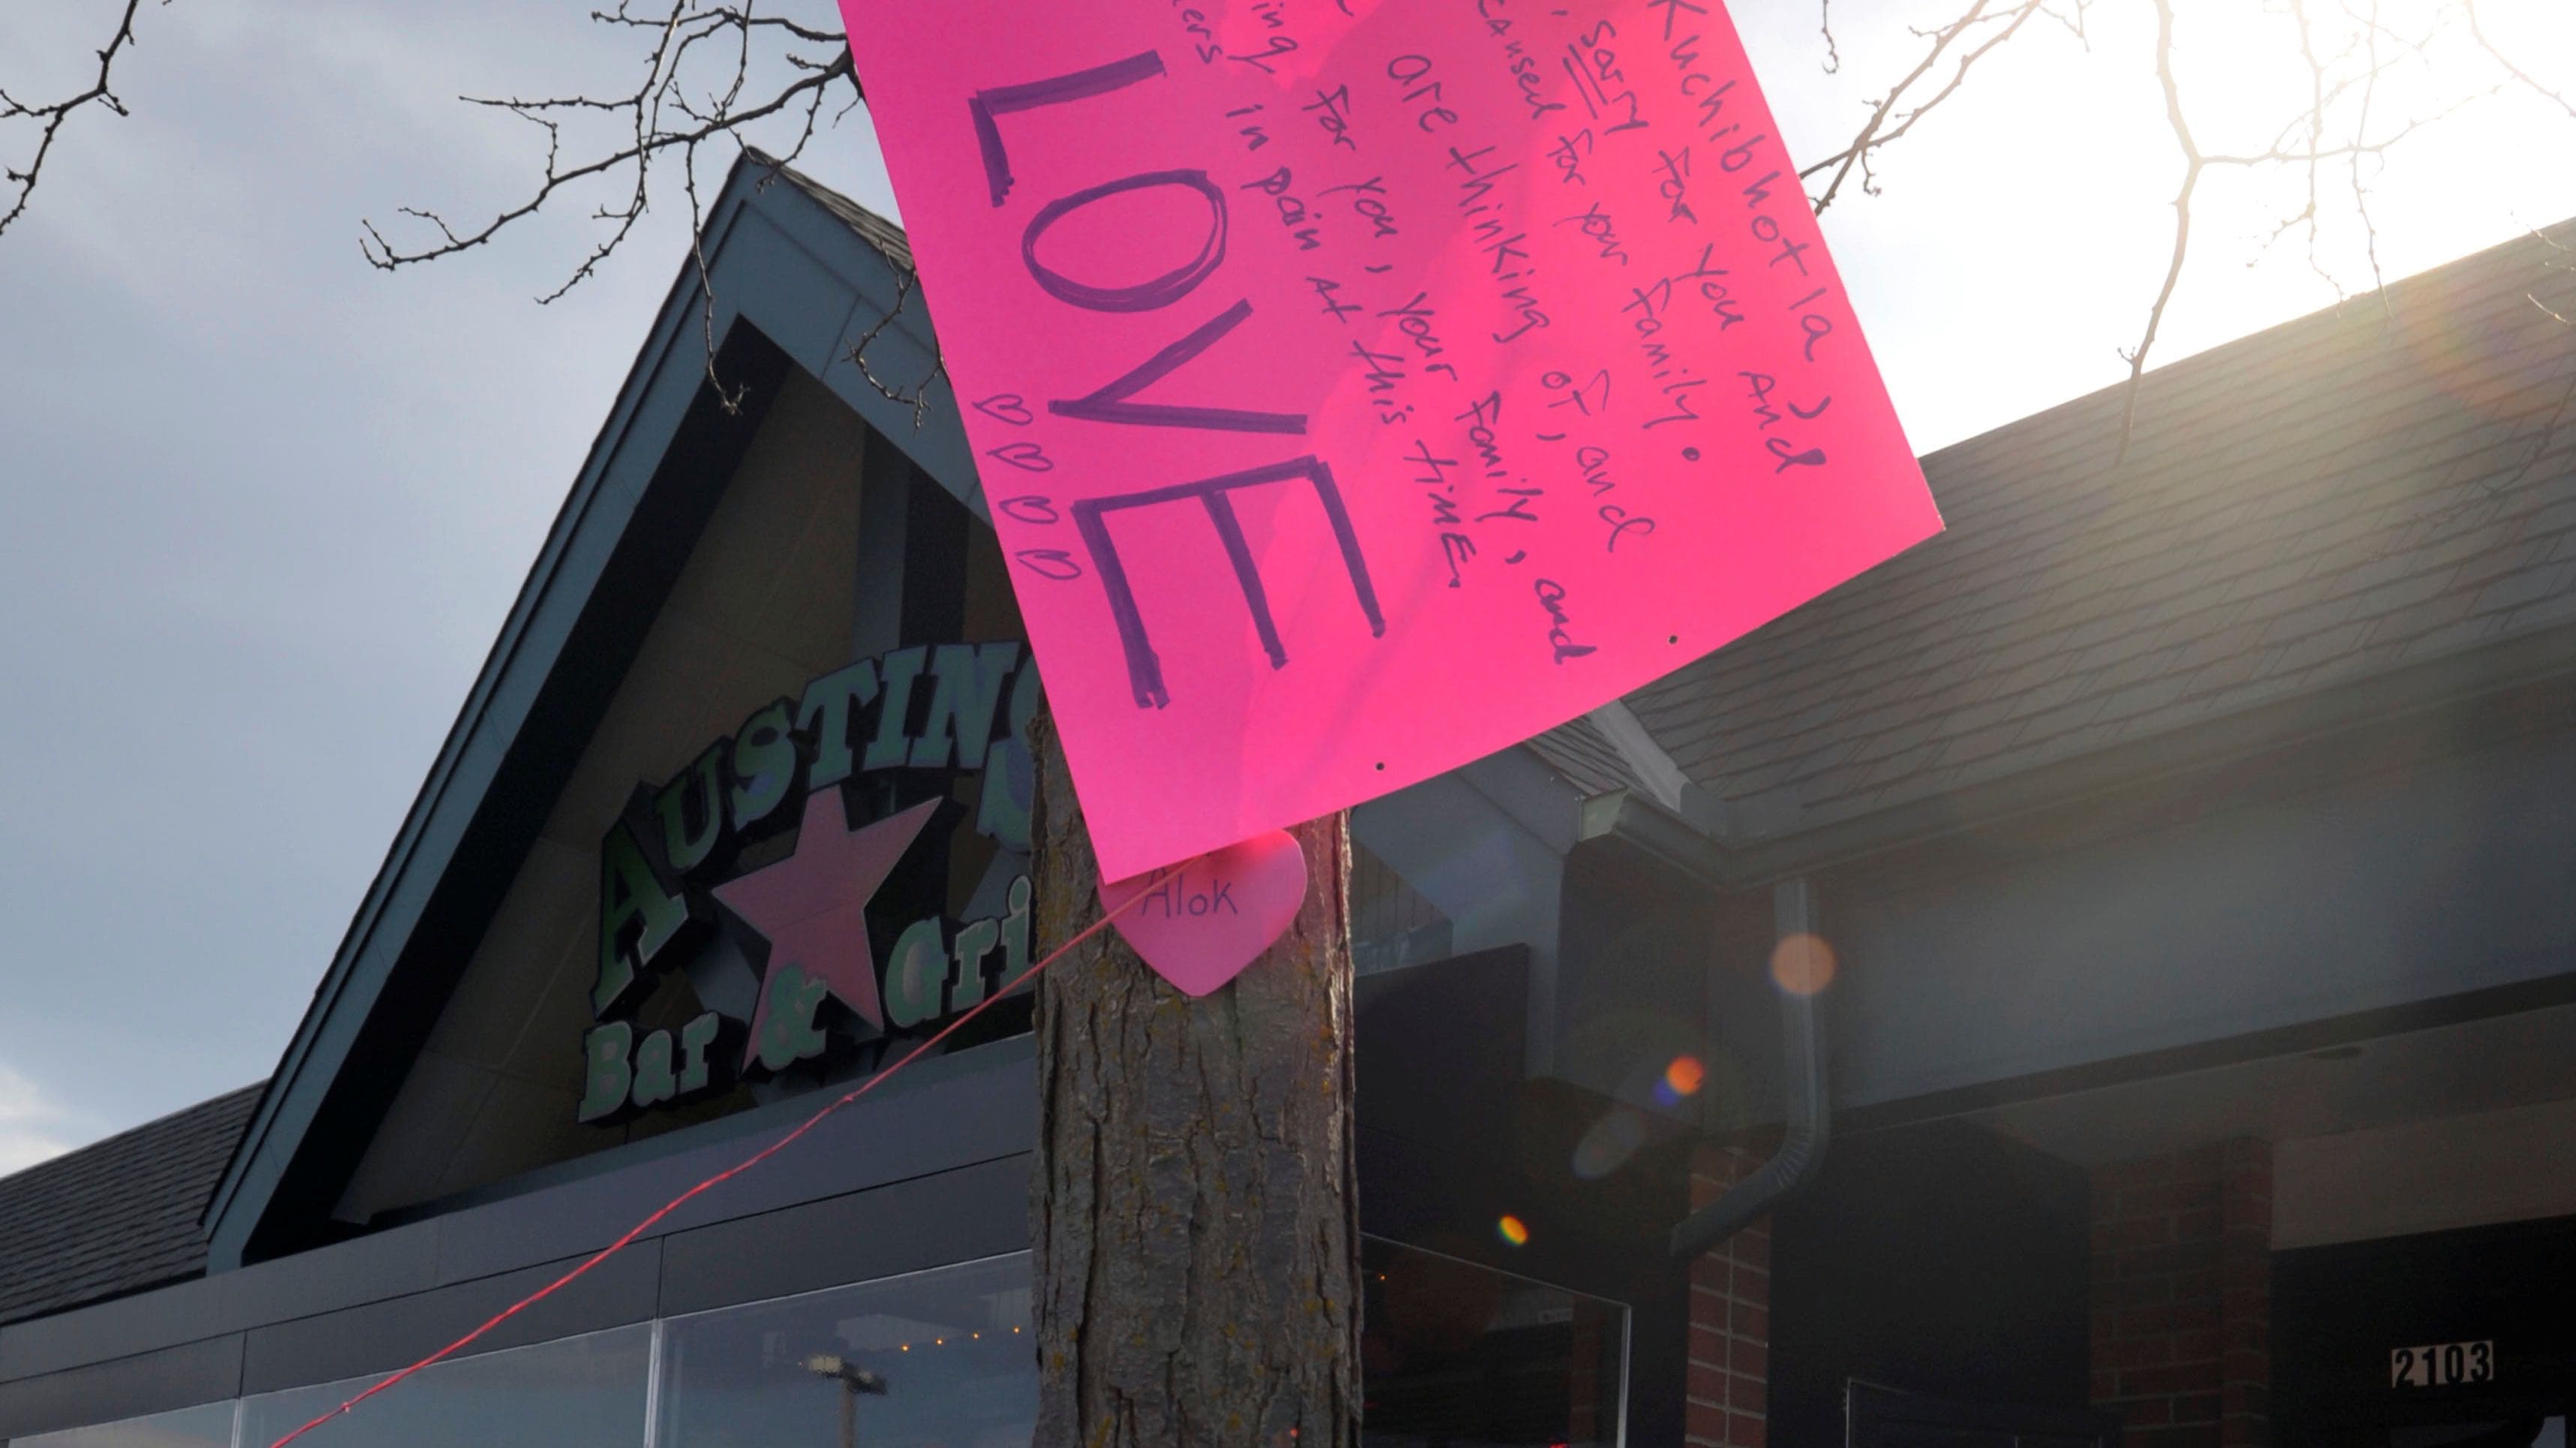 Kuchibhotla,
sorry for you and
caused for your family.
are thinking of, and
ing for you, your family, and
ers in pain at this time.
LOVE
Alok
AUSTINS
Bar & Gri
2103